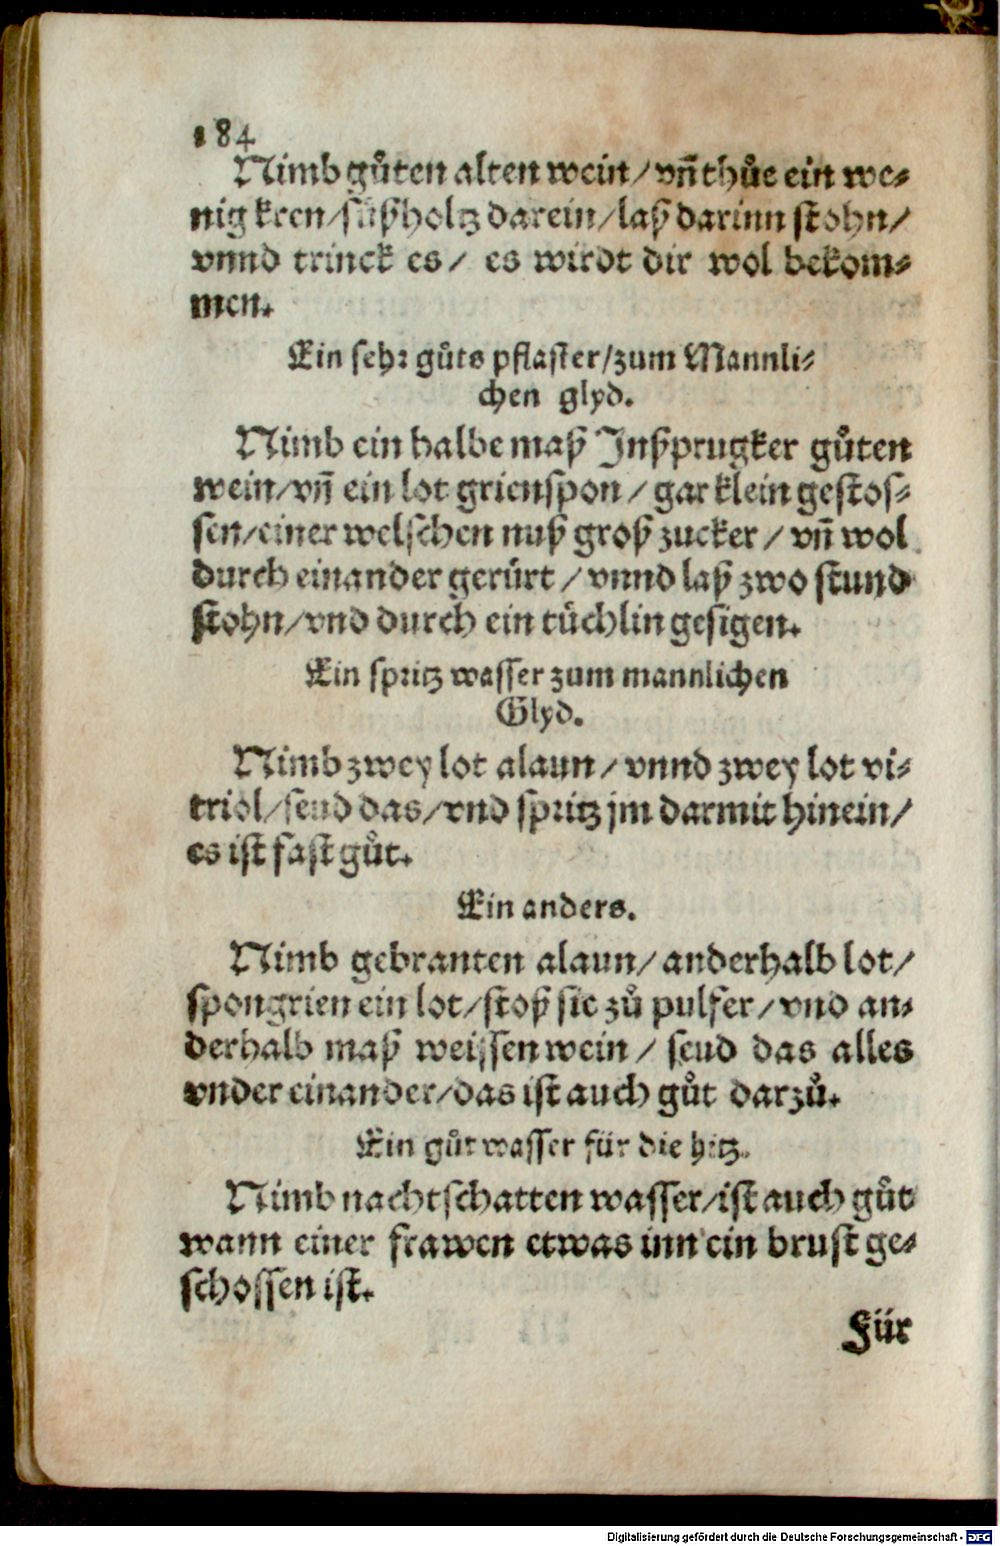 184
Nimb gůten alten wein / vn̄ thůe ein we-
nig kren / süßholtz darein / laß darinn stohn /
vnnd trinck es / es wirdt dir wol bekom-
men.
Ein sehr gůts pflaster / zum Mannli-
chen glyd.
Nimb ein halbe maß Jnßprugker gůten
wein / vn̄ ein lot grienspon / gar klein gestos-
sen / einer welschen nuß groß zucker / vn̄ wol
durch einander gerürt / vnnd laß zwo stund
stohn / vnd durch ein tüchlin gesigen.
Ein spritz wasser zum mannlichen
Glyd.
Nimb zwey lot alaun / vnnd zwey lot vi-
triol / seud das / vnd spritz jm darmit hinein /
es ist fast gůt.
Ein anders.
Nimb gebranten alaun / anderhalb lot /
spongrien ein lot / stoß sie zů pulfer / vnd an-
derhalb maß weissen wein / seud das alles
vnder einander / das ist auch gůt darzů.
Ein gůt wasser für die hitz.
Nimb nachtschatten wasser / ist auch gůt
wann einer frawen etwas inn ein brust ge-
schossen ist.
Für
Digitalisierung gefördert durch die Deutsche Forschungsgemeinschaft - DFG